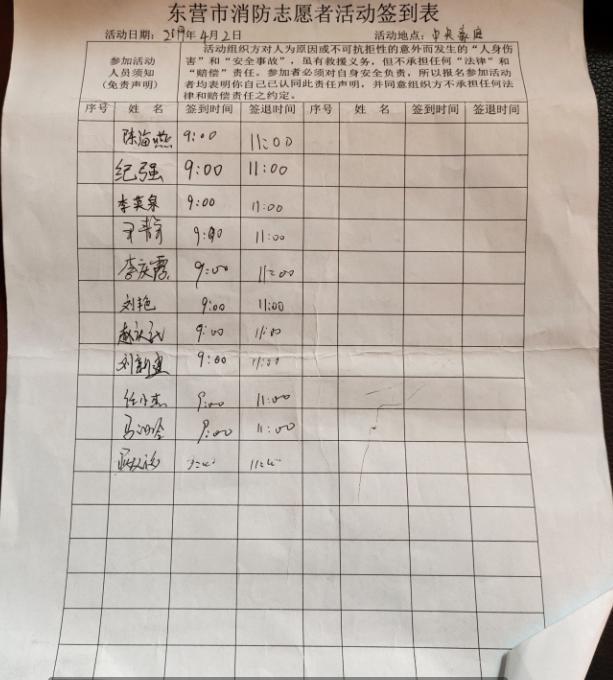 东营市消防志愿者活动签到表
活动日期：2019年4月2日 活动地点：中央豪庭
参加活动
人员须知
（免责声明）
活动组织方对人为原因或不可抗拒性的意外而发生的“人身伤
害”和“安全事故”，虽有救援义务，但不承担任何“法律”和
“赔偿”责任。参加者必须对自身安全负责，所以报名参加活动
者均表明你自己已认同此责任声明，并同意组织方不承担任何法
律和赔偿责任之约定。
序号 姓 名 签到时间 签退时间 序号 姓 名 签到时间 签退时间
陈海燕 9:00 11:00
纪强 9:00 11:00
李英泉 9:00 11:00
静 9:00 11:00
李庆霞 9:00 11:00
刘艳 9:00 11:00
赵 9:00 11:00
刘新建 9:00 11:00
任 杰 9:00 11:00
马 玲 9:00 11:00
9:00 11:00